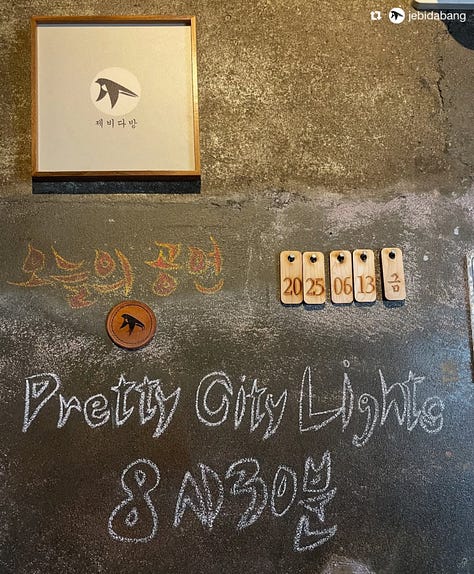 jebidabang
제비다방
오늘의 공연
20 25 06 13 금
Pretty City Lights
8시30분